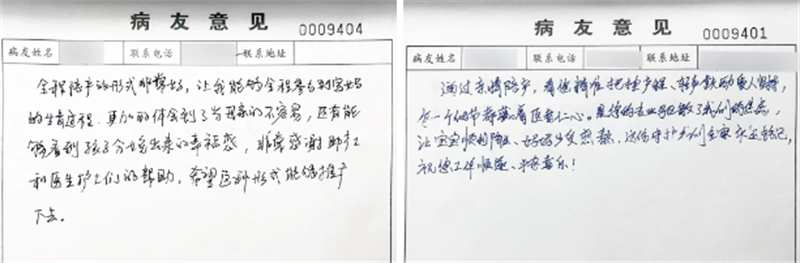 病友意见
0009404
病友姓名
联系电话
联系地址
全程陪产的形式非常好，让我能够全程参与到宝妈
的生育过程，更加的体会到了当母亲的不容易，还有能
够看到孩子分娩出来的幸福感，非常感谢助产士
和医生护士们的帮助，希望这种形式能够推广
下去。
病友意见
0009401
病友姓名
联系电话
联系地址
通过亲情陪产，看您精准把控产程、轻声鼓励爱人坚持，
每一个细节都藏着医者仁心。是您的专业
了我们的焦虑，
让宝宝快
、妈妈少受
，这份守护我们全家永远铭记，
祝您工作顺遂、平安喜乐！